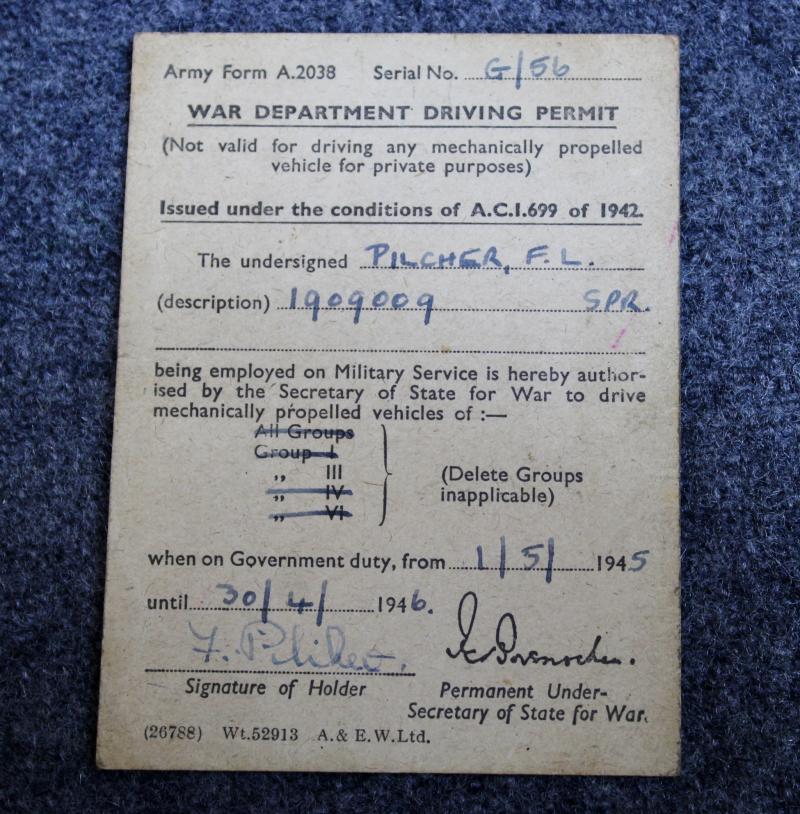 Army Form A.2038 Serial No. G/56
WAR DEPARTMENT DRIVING PERMIT
(Not valid for driving any mechanically propelled
vehicle for private purposes)
Issued under the conditions of A.C.I.699 of 1942.
The undersigned PILCHER, F.L.
(description) 1909009 SPR.
being employed on Military Service is hereby author-
ised by the Secretary of State for War to drive
mechanically propelled vehicles of :—
All Groups
Group I
„ III
„ IV
„ VI
(Delete Groups
inapplicable)
when on Government duty, from 1/5/ 1945
until 30/4/ 1946.
F. Pilcher.
Signature of Holder
Permanent Under-
Secretary of State for War.
(26788) Wt.52913 A. & E.W.Ltd.